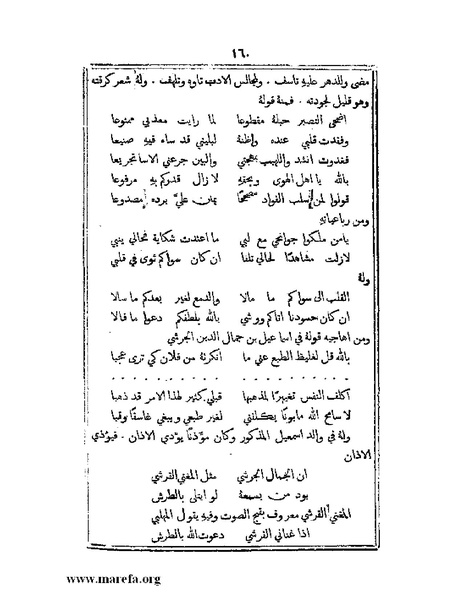 ١٦٠
مضى والدهر عليهِ تاسف . ولمجالس الادب تاوه وتلهف . ولهُ شعر كرقته
وهو قليل لجودته . فمنهُ قولهُ
اضحى التصبر حبلهُ مقطوعا لما رايت معذبي ممنوعا
وفقدت قلبي عنده واظنهُ لبليتي قد ساء فيهِ صنيعا
فغدوت انشد واللهيب بمهجتي والبين جرعني الاسا تجريعا
بالله يا اهل الهوى وبحقهِ لا زال قدركم بهِ مرفوعا
قولوا لمن سلب الفواد مصححًا يمنن عليَّ برده مصدوعا
ومن رباعياتهِ
يامن ملكوا جوانحي مع لبي ما اعتدت شكاية فحالي ينبي
لازلت مشاهدًا لحالي تلفا ان كان سواكم ثوى في قلبي
ولهُ
القلب الى سواكم ما مالا والدمع لغير بعدكم ما سالا
ان كان حسودنا اتاكم ووشى بالله بلطفكم دعوا ما قالا
ومن اهاجيه قولهُ في اسماعيل بن جمال الدين الجرشي
بالله قل لغليظ الطبع عني ما انكرتهُ من فلان كي ترى عجبا
. . . . . . . . . . . . . .
اكلف النفس تغييرًا لمذهبها قبلي كثير لهذا الامر قد ذهبا
لا سامح الله مابونًا يكلفني لغير طبعي ويبغي غاسقًا وقبا
ولهُ في والد اسمعيل المذكور وكان مؤذنًا يؤذي الاذان . فيؤذي
الاذان
ان الجمال الجرشي مثل المغني القرشي
يود من يسمعهُ لو ابتلى بالطرش
المغني القرشي معروف بقبح الصوت وفيهِ يقول المهلبي
اذا غناني القرشي دعوت الله بالطرش
www.marefa.org